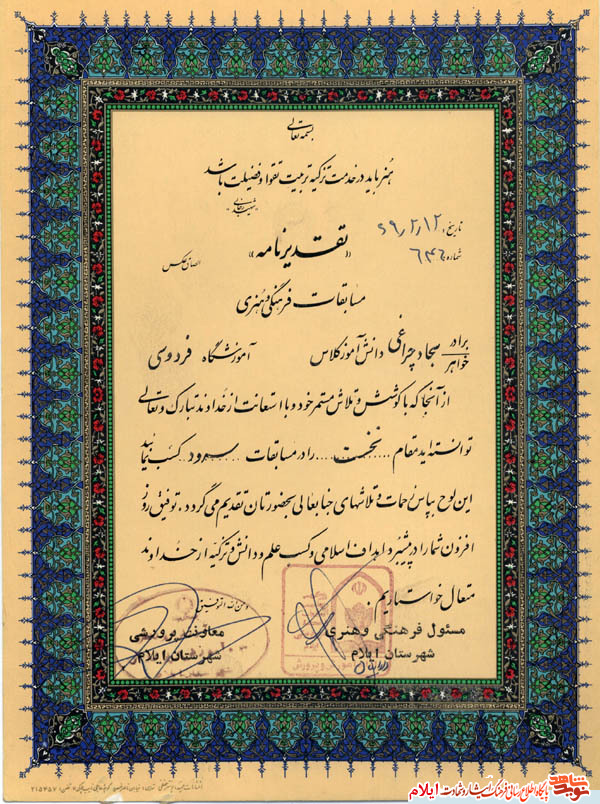 بسمه تعالی
هنر باید در خدمت تزکیه تربیت تقوا و فضیلت باشد
شهید رجائی
تاریخ: ۶۹/۲/۱۲
شماره: ۶۴۶
«تقدیرنامه»
الصاق عکس
مسابقات فرهنگی و هنری
برادر
خواهر
سجاد چراغی دانش آموز کلاس آموزشگاه فردوسی
از آنجا که با کوشش و تلاش مستمر خود و با استعانت از خداوند تبارک و تعالی
توانسته اید مقام نخست را در مسابقات سرود کسب نمائید
این لوح بپاس زحمات و تلاشهای جنابعالی بحضورتان تقدیم می گردد، توفیق روز
افزون شما را در پیشبرد اهداف اسلامی و کسب علم و دانش و تزکیه از خداوند
متعال خواستاریم.
ومن الله التوفیق
مسئول فرهنگی وهنری
شهرستان ایلام
معاونت پرورشی
شهرستان ایلام
پایگاه اطلاع رسانی فرهنگ ایثار و شهادت ایلام
نوید شاهد